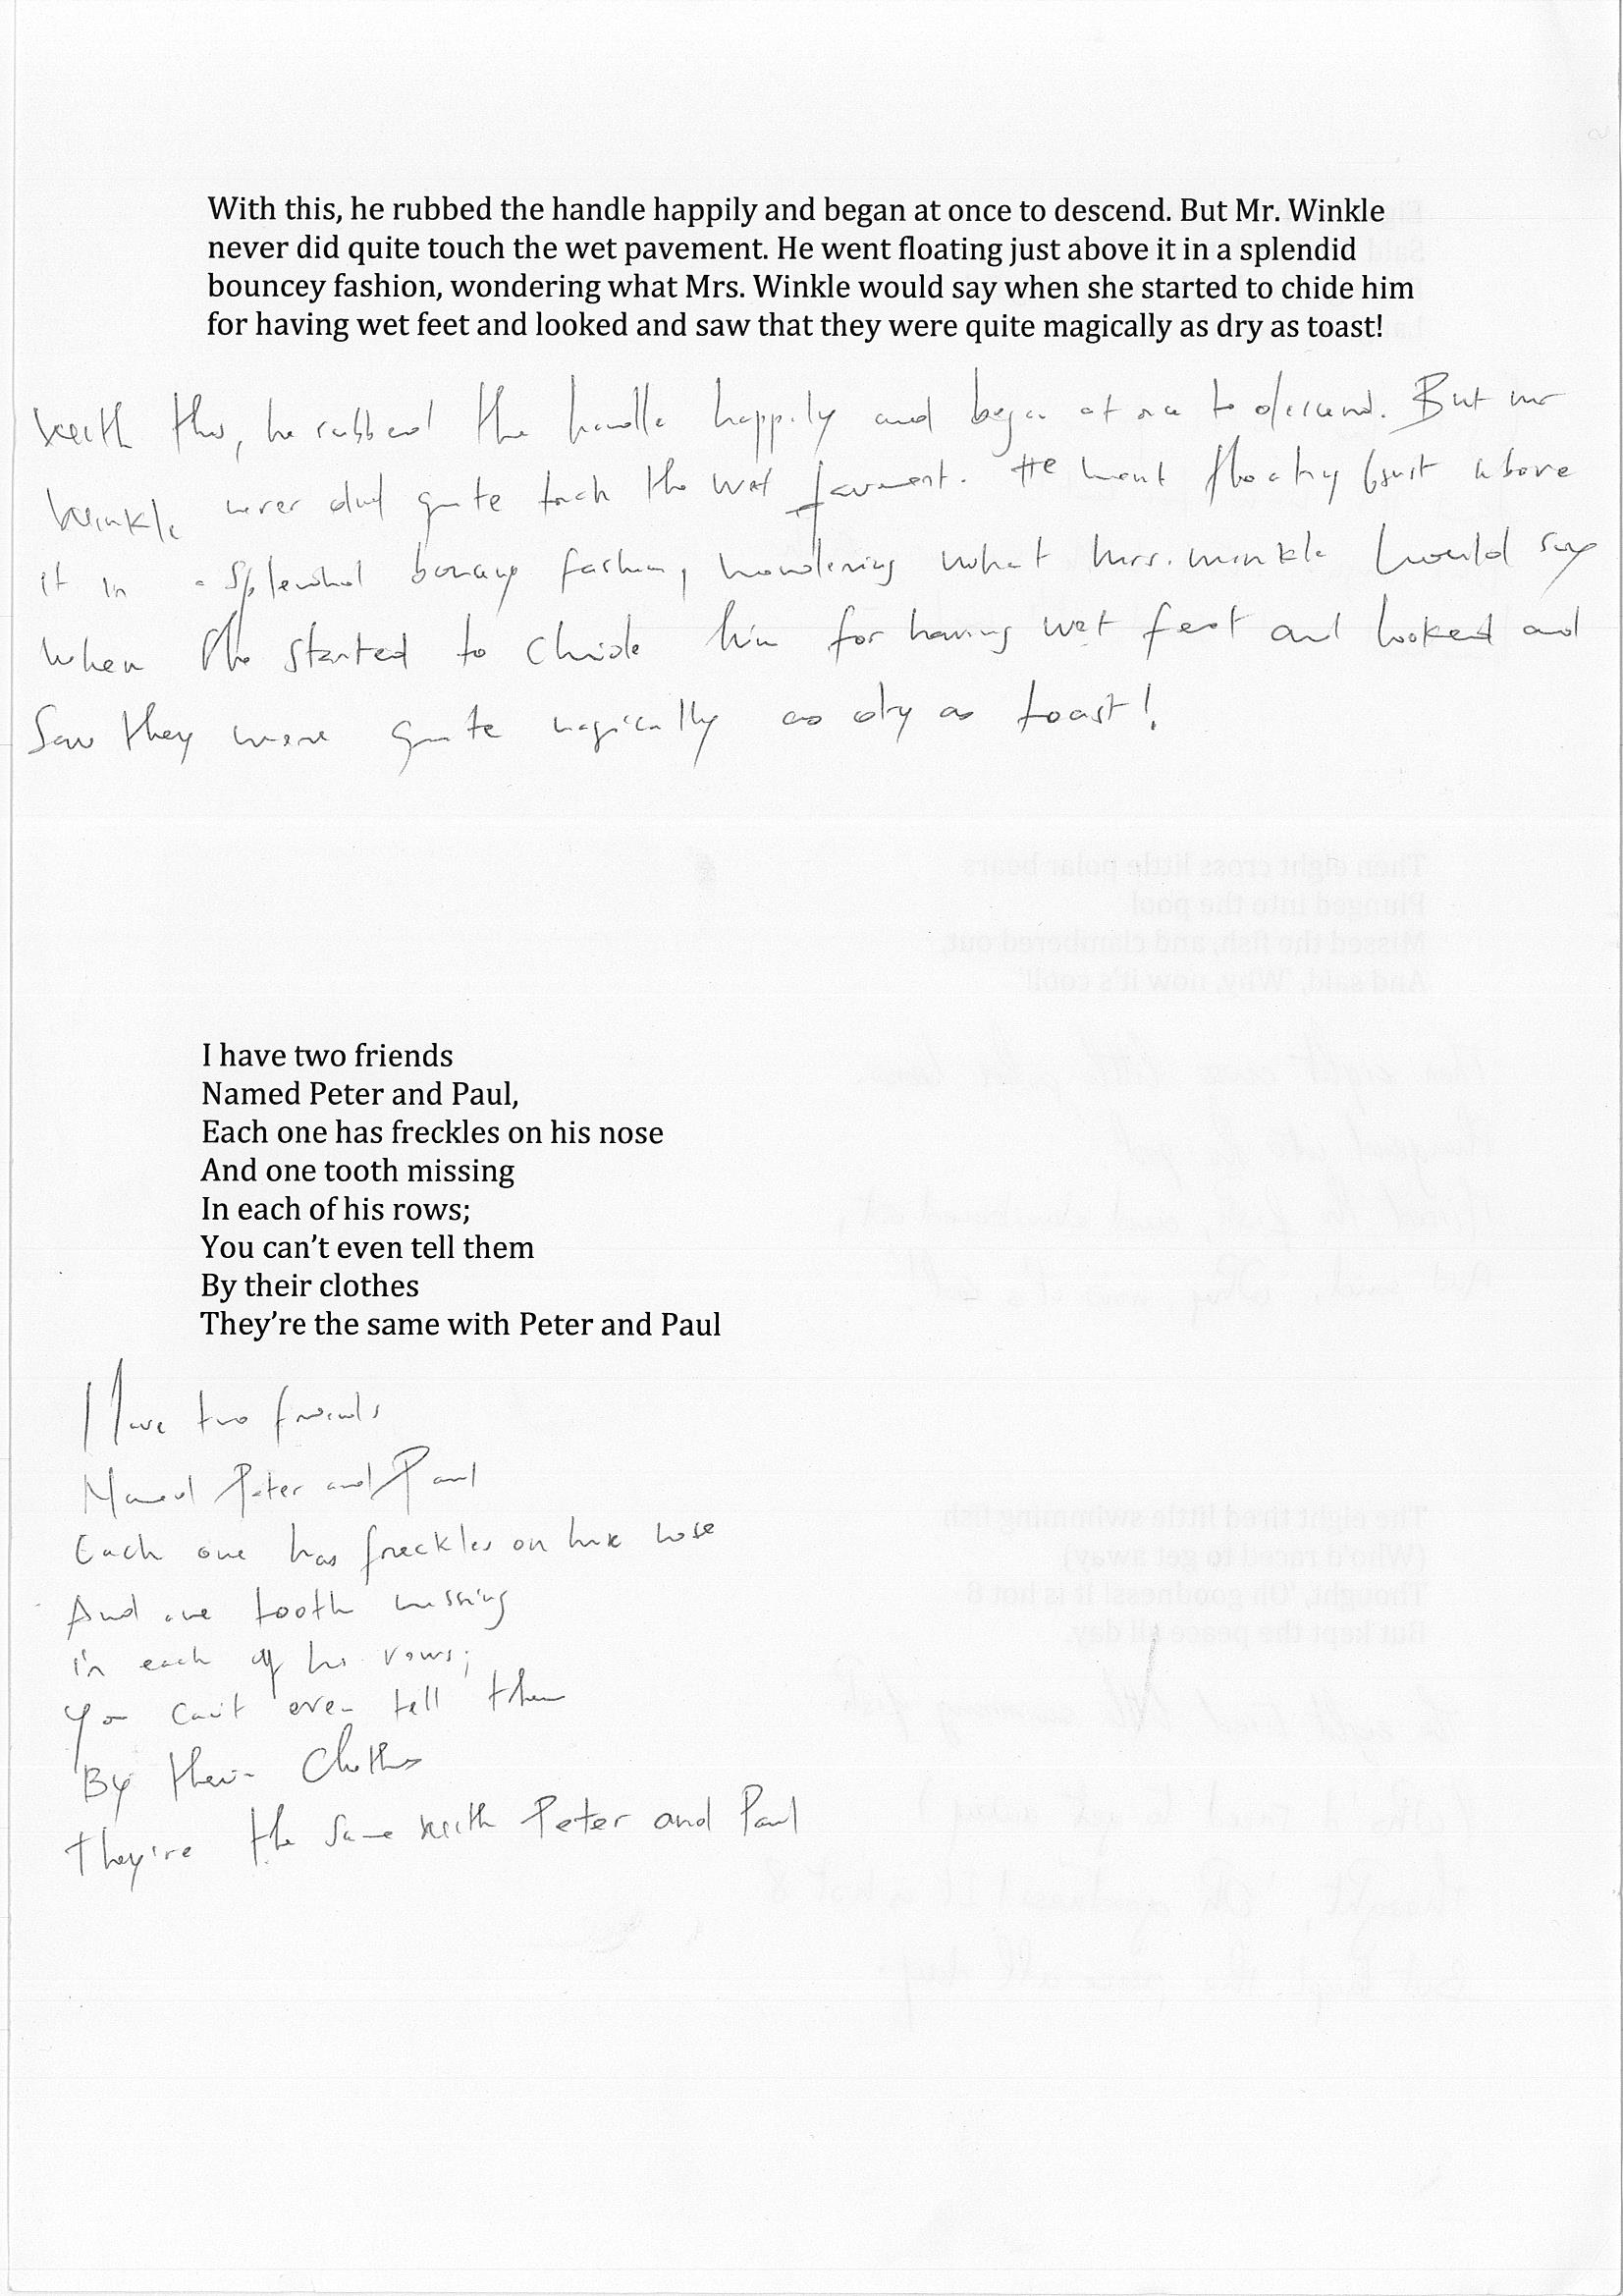 With this, he rubbed the handle happily and began at once to descend. But Mr. Winkle
never did quite touch the wet pavement. He went floating just above it in a splendid
bouncey fashion, wondering what Mrs. Winkle would say when she started to chide him
for having wet feet and looked and saw that they were quite magically as dry as toast!
With this, he rubbed the handle happily and began at once to descend. But mr
Winkle never did quite touch the wet pavement. He went floating just above
it in a splendid bouncy fashion, wondering what Mrs. winkle would say
when she started to chide him for having wet feet and looked and
Saw they were quite magically as dry as toast!
I have two friends
Named Peter and Paul,
Each one has freckles on his nose
And one tooth missing
In each of his rows;
You can’t even tell them
By their clothes
They’re the same with Peter and Paul
I have two friends
Named Peter and Paul
Each one has freckles on his nose
And one tooth missing
in each of his rows;
You can't even tell them
By their Clothes
They're the same with Peter and Paul